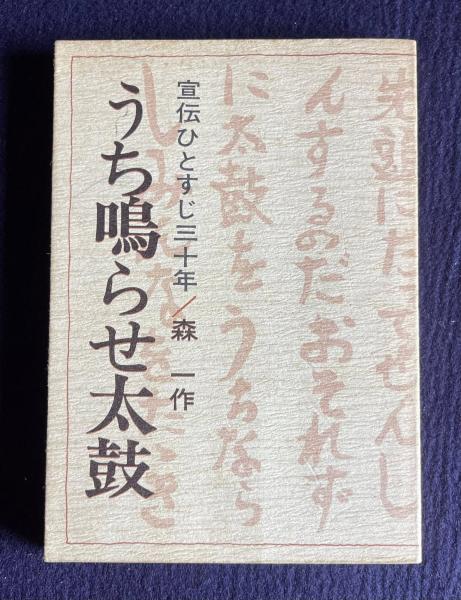 先頭にた
んするのだおそれず
に太鼓をうちなら
宣伝ひとすじ三十年/森 一作
うち鳴らせ太鼓